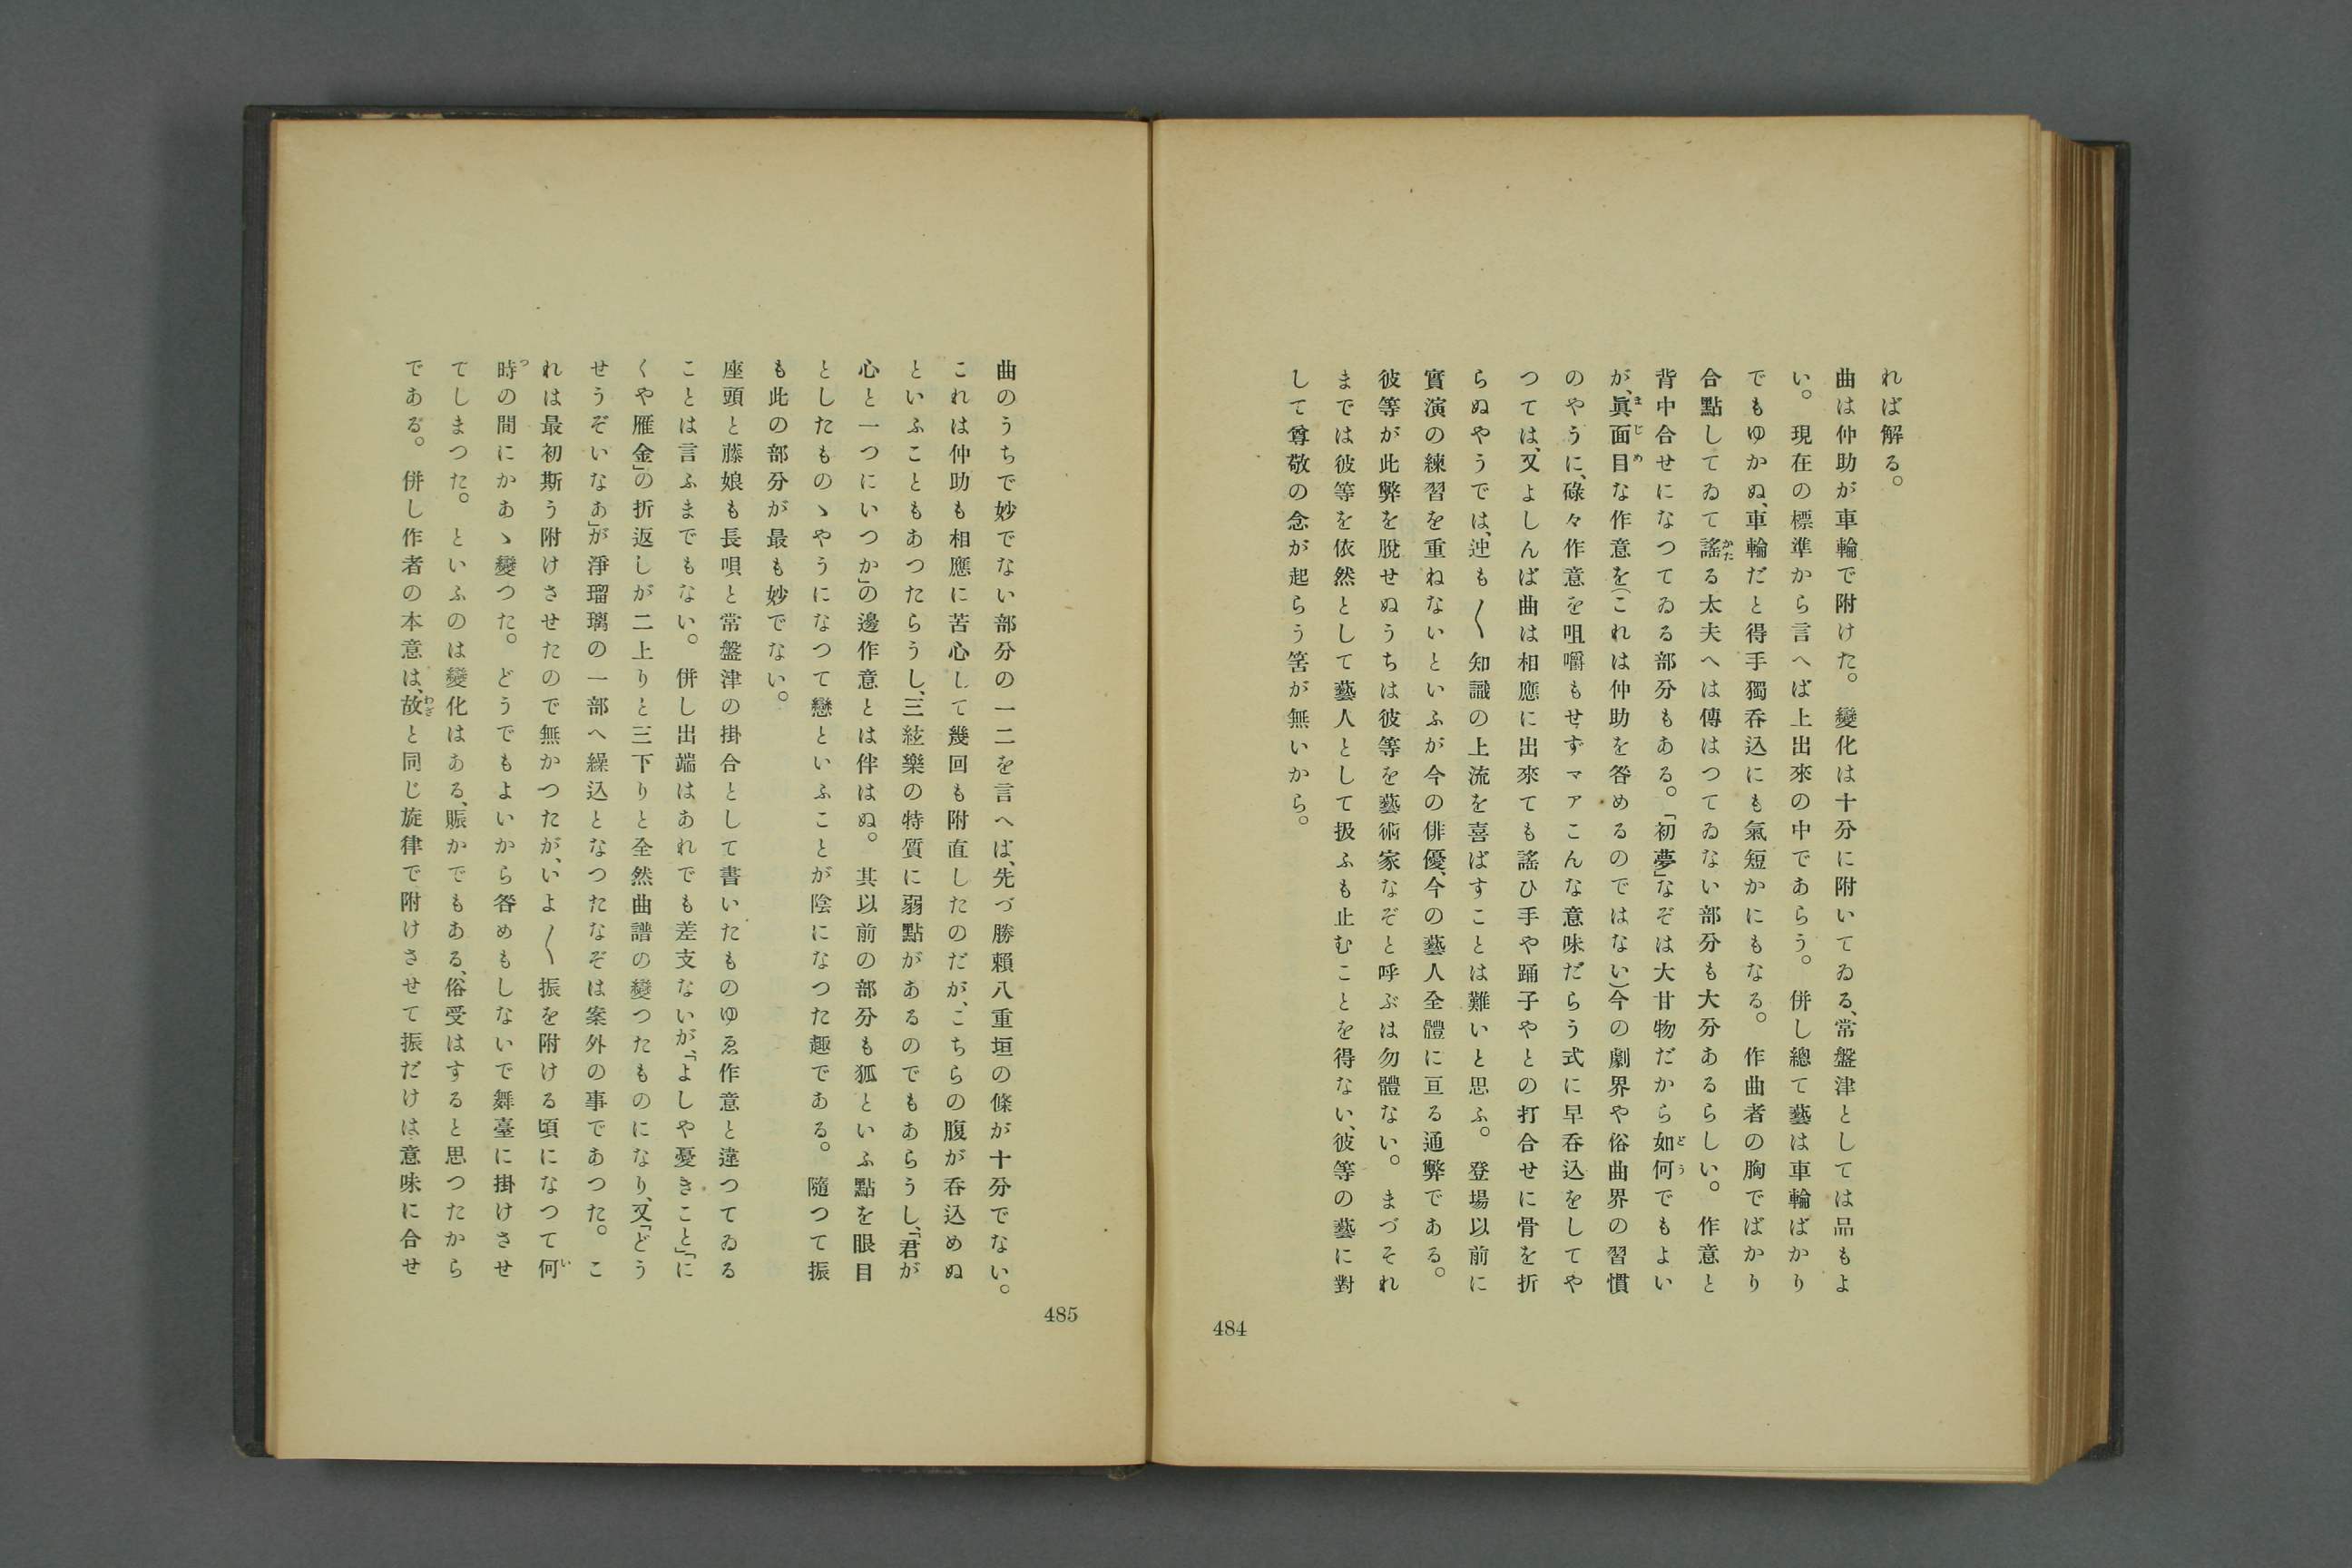 れば解る。
曲は仲助が車輪で附けた。變化は十分に附いてゐる、常盤津としては品もよ
い。現在の標準から言へば上出來の中であらう。併し總て藝は車輪ばかり
でもゆかぬ、車輪だと得手獨呑込にも氣短かにもなる。作曲者の胸でばかり
合點してゐて謠る太夫へは傳はつてゐない部分も大分あるらしい。作意と
背中合せになつてゐる部分もある。「初夢」なぞは大甘物だから如何でもよい
が、眞面目な作意を(これは仲助を咎めるのではない)今の劇界や俗曲界の習慣
のやうに、碌々作意を咀嚼もせずマァこんな意味だらう式に早呑込をしてや
つては、又よしんば曲は相應に出來ても謠ひ手や踊子やとの打合せに骨を折
らぬやうでは、迚も〱知識の上流を喜ばすことは難いと思ふ。登場以前に
實演の練習を重ねないといふが今の俳優、今の藝人全體に亘る通弊である。
彼等が此弊を脫せぬうちは彼等を藝術家なぞと呼ぶは勿體ない。まづそれ
までは彼等を依然として藝人として扱ふも止むことを得ない、彼等の藝に對
して尊敬の念が起らう筈が無いから。
484
曲のうちで妙でない部分の一二を言へば、先づ勝賴八重垣の條が十分でない。
これは仲助も相應に苦心して幾回も附直したのだが、こちらの腹が呑込めぬ
といふこともあつたらうし、三絃樂の特質に弱點があるのでもあらうし、「君が
心と一つにいつか」の邊作意とは伴はぬ。其以前の部分も狐といふ點を眼目
としたものゝやうになつて戀といふことが陰になつた趣である。隨つて振
も此の部分が最も妙でない。
座頭と藤娘も長唄と常盤津の掛合として書いたものゆゑ作意と違つてゐる
ことは言ふまでもない。併し出端はあれでも差支ないが、「よしや憂きこと」「に
くや雁金」の折返しが二上りと三下りと全然曲譜の變つたものになり、又「どう
せうぞいなぁ」が淨瑠璃の一部へ繰込となつたなぞは案外の事であつた。こ
れは最初斯う附けさせたので無かつたが、いよ〱振を附ける頃になつて何
時の間にかあゝ變つた。どうでもよいから咎めもしないで舞臺に掛けさせ
てしまつた。といふのは變化はある、賑かでもある、俗受はすると思つたから
である。併し作者の本意は、故と同じ旋律で附けさせて振だけは意味に合せ
485